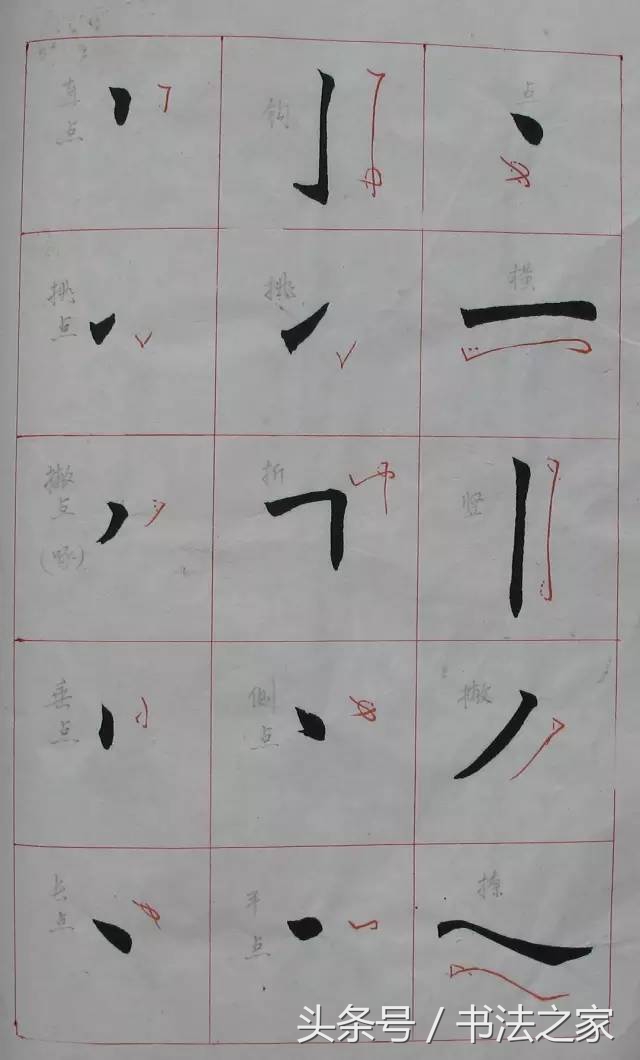 直点
钩
点
挑点
挑
横
撇点
(啄)
折
竖
垂点
侧点
撇
长点
平点
捺
头条号 / 书法之家